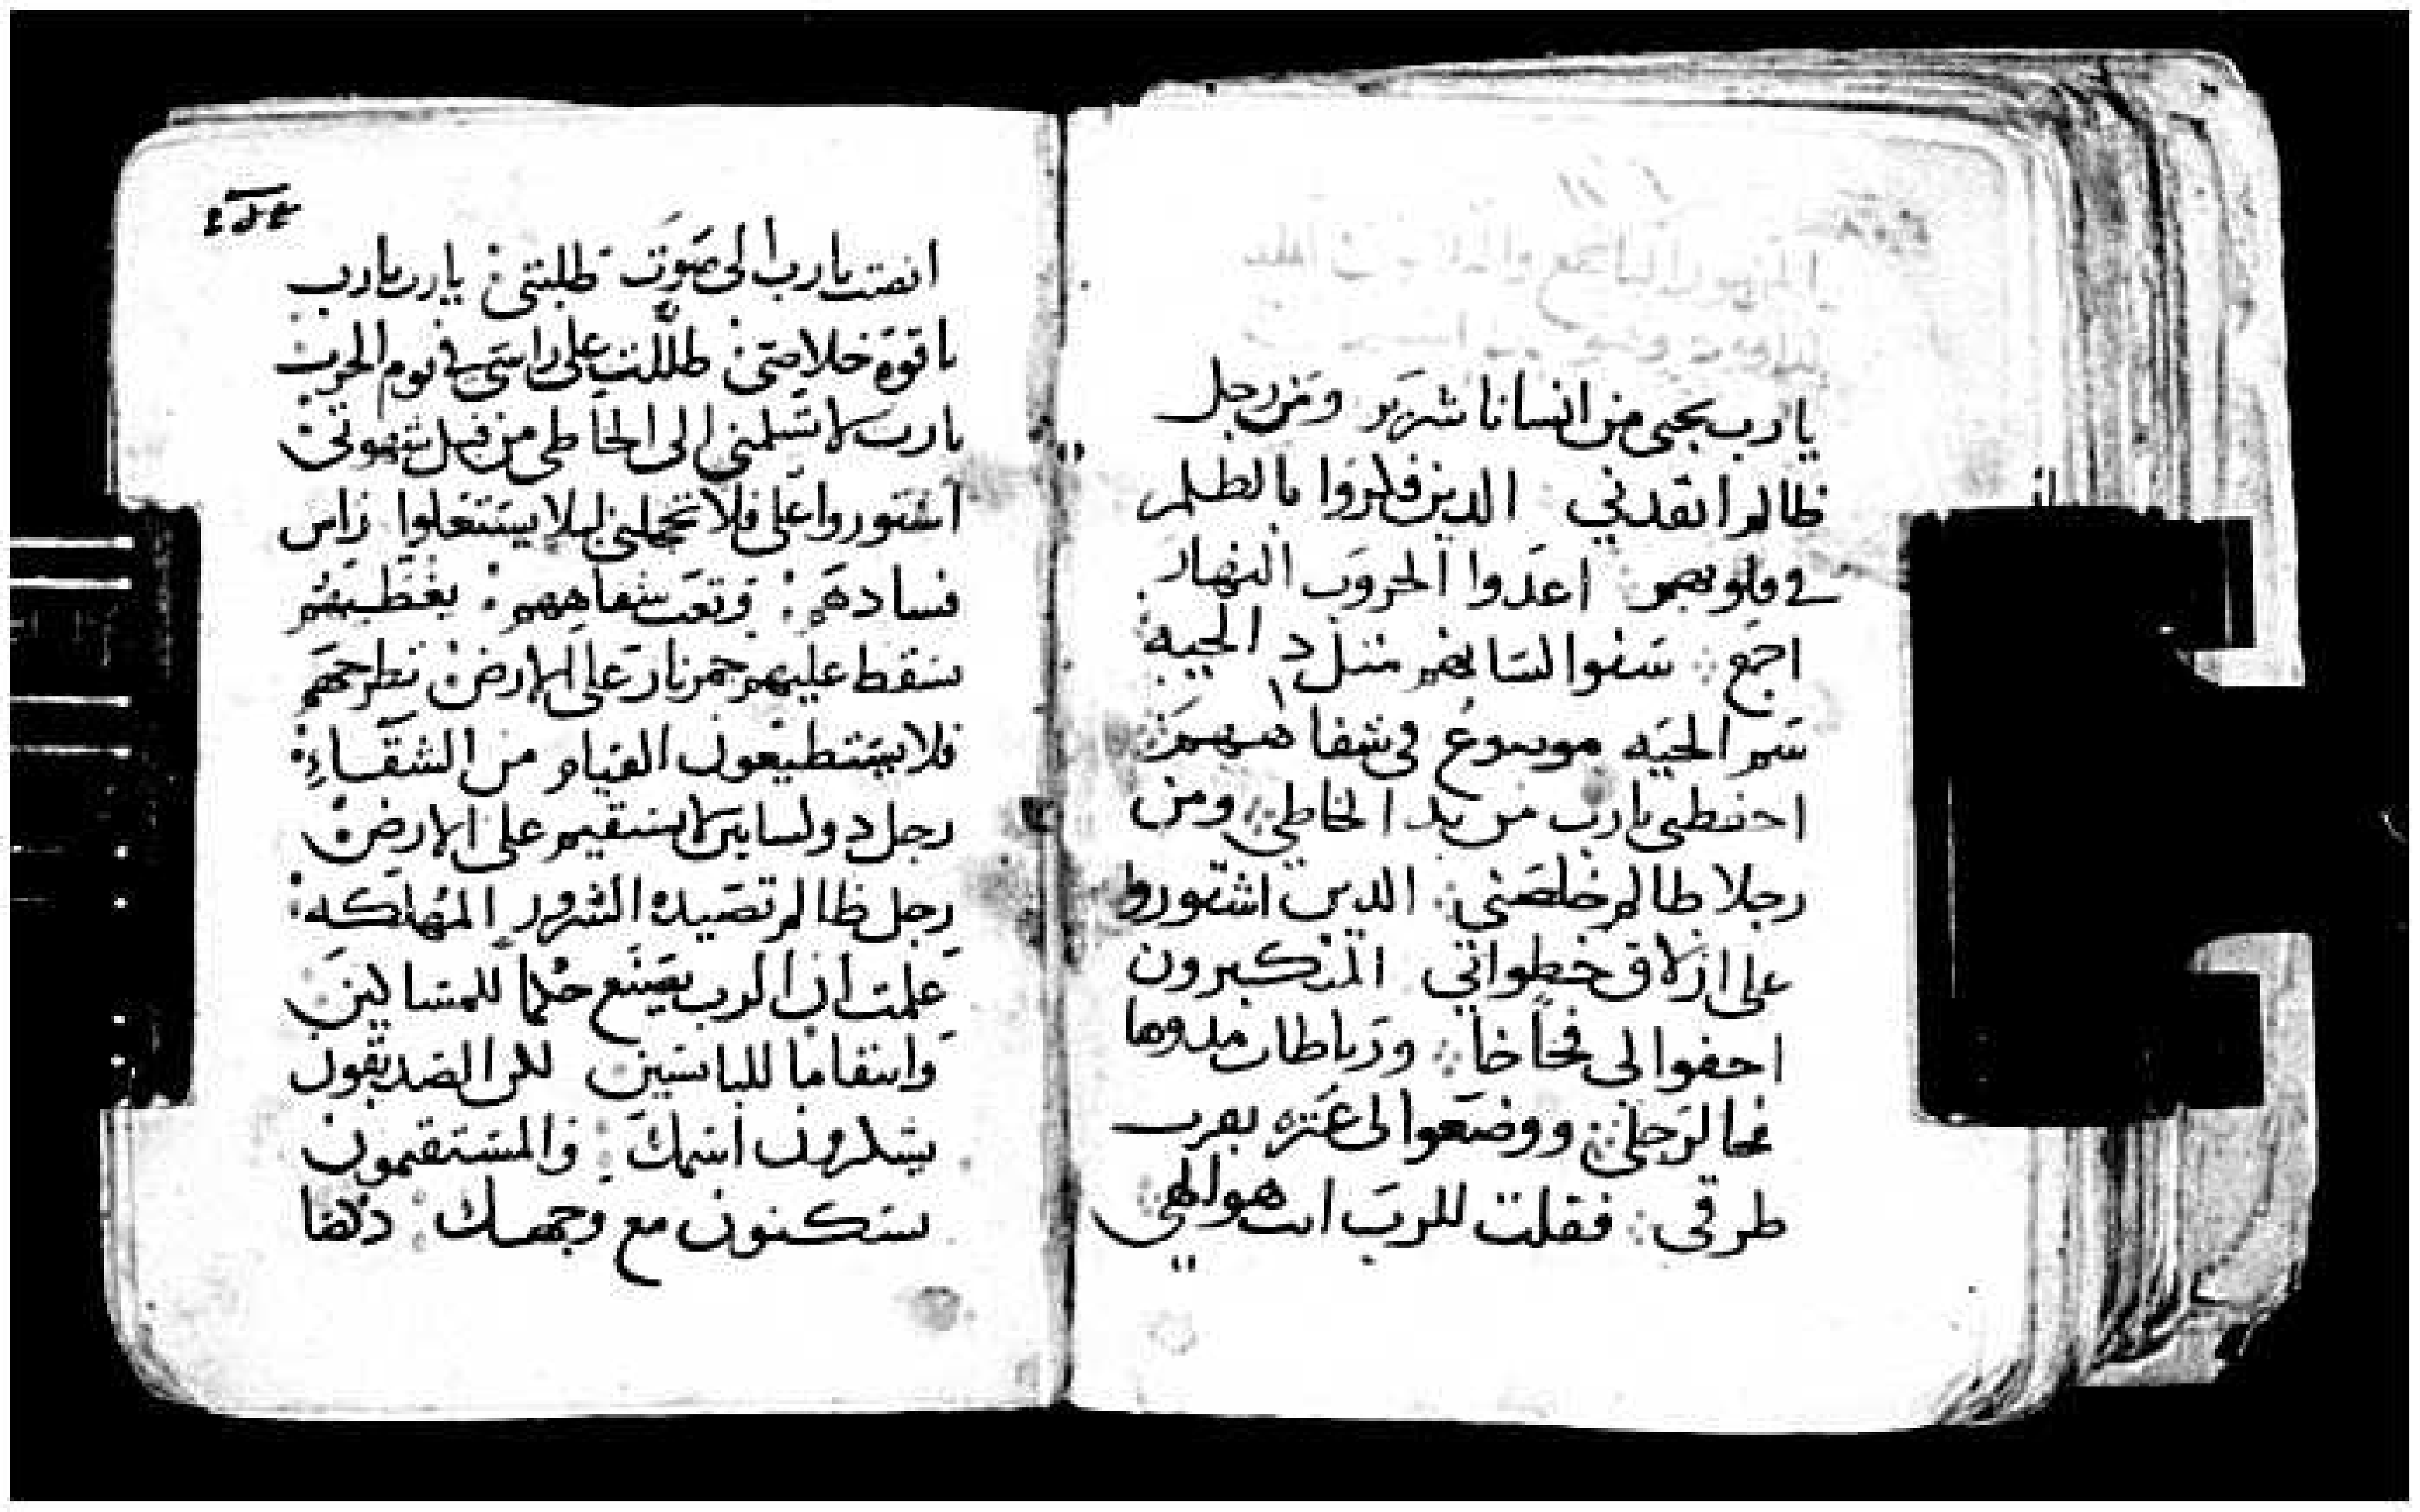 يارب نجني من انسانا شرير ومن رجل
ظالم انقدني الدين فكروا بالظلم
في قلوبهم اعدوا الحروب النهار
اجمع سنوا لسانهم متل الحيه
سم الحيه موضوع في شفاههم
احفظني يارب من يد الخاطي ومن
رجلا ظالم خلصني الدين اشتوروا
على ازلاق خطواتي المتكبرون
اخفوا لي فخاخا ورباطات مدوها
فخا لرجلي ووضعوا لي عتره بقرب
طرقي فقلت للرب انت هو الهي
انصت يارب الى صوت طلبتي يارب يارب
ياقوة خلاصي ظللت على راسي في يوم الحرب
يارب لا تسلمني الى الخاطي من قبل شهوتي
اشتوروا علي فلا تخملني ليلا يستعلوا راس
فسادهم وتعب شفاههم يغطيهم
سقط عليهم جمر نار على الارض تطرحهم
فلا يستطيعون القيام من الشقاء
رجل دو لسانين لا يستقيم على الارض
رجل ظالم تصيده الشرور المهلكه
علمت ان الرب يصنع حكما للمساكين
وانتقاما للباسين لكن الصديقون
يشكرون اسمك والمستقيمون
يسكنون مع وجهك